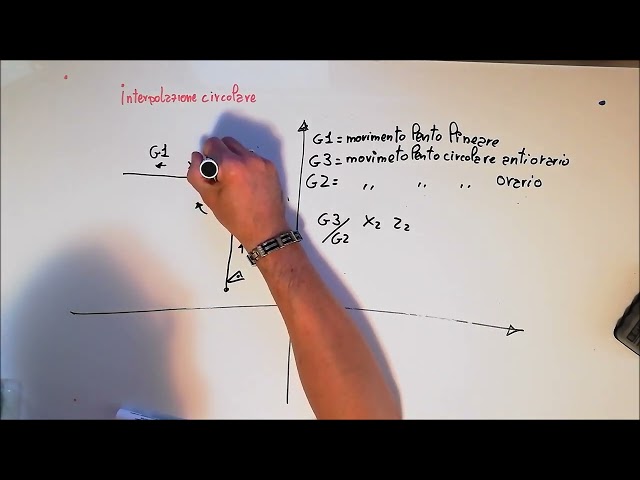 interpolazione circolare
G1 = movimento lento lineare
G3 = movimeto lento circolare antiorario
G2 = ,, ,, ,, orario
G1
G3/G2 X2 Z2